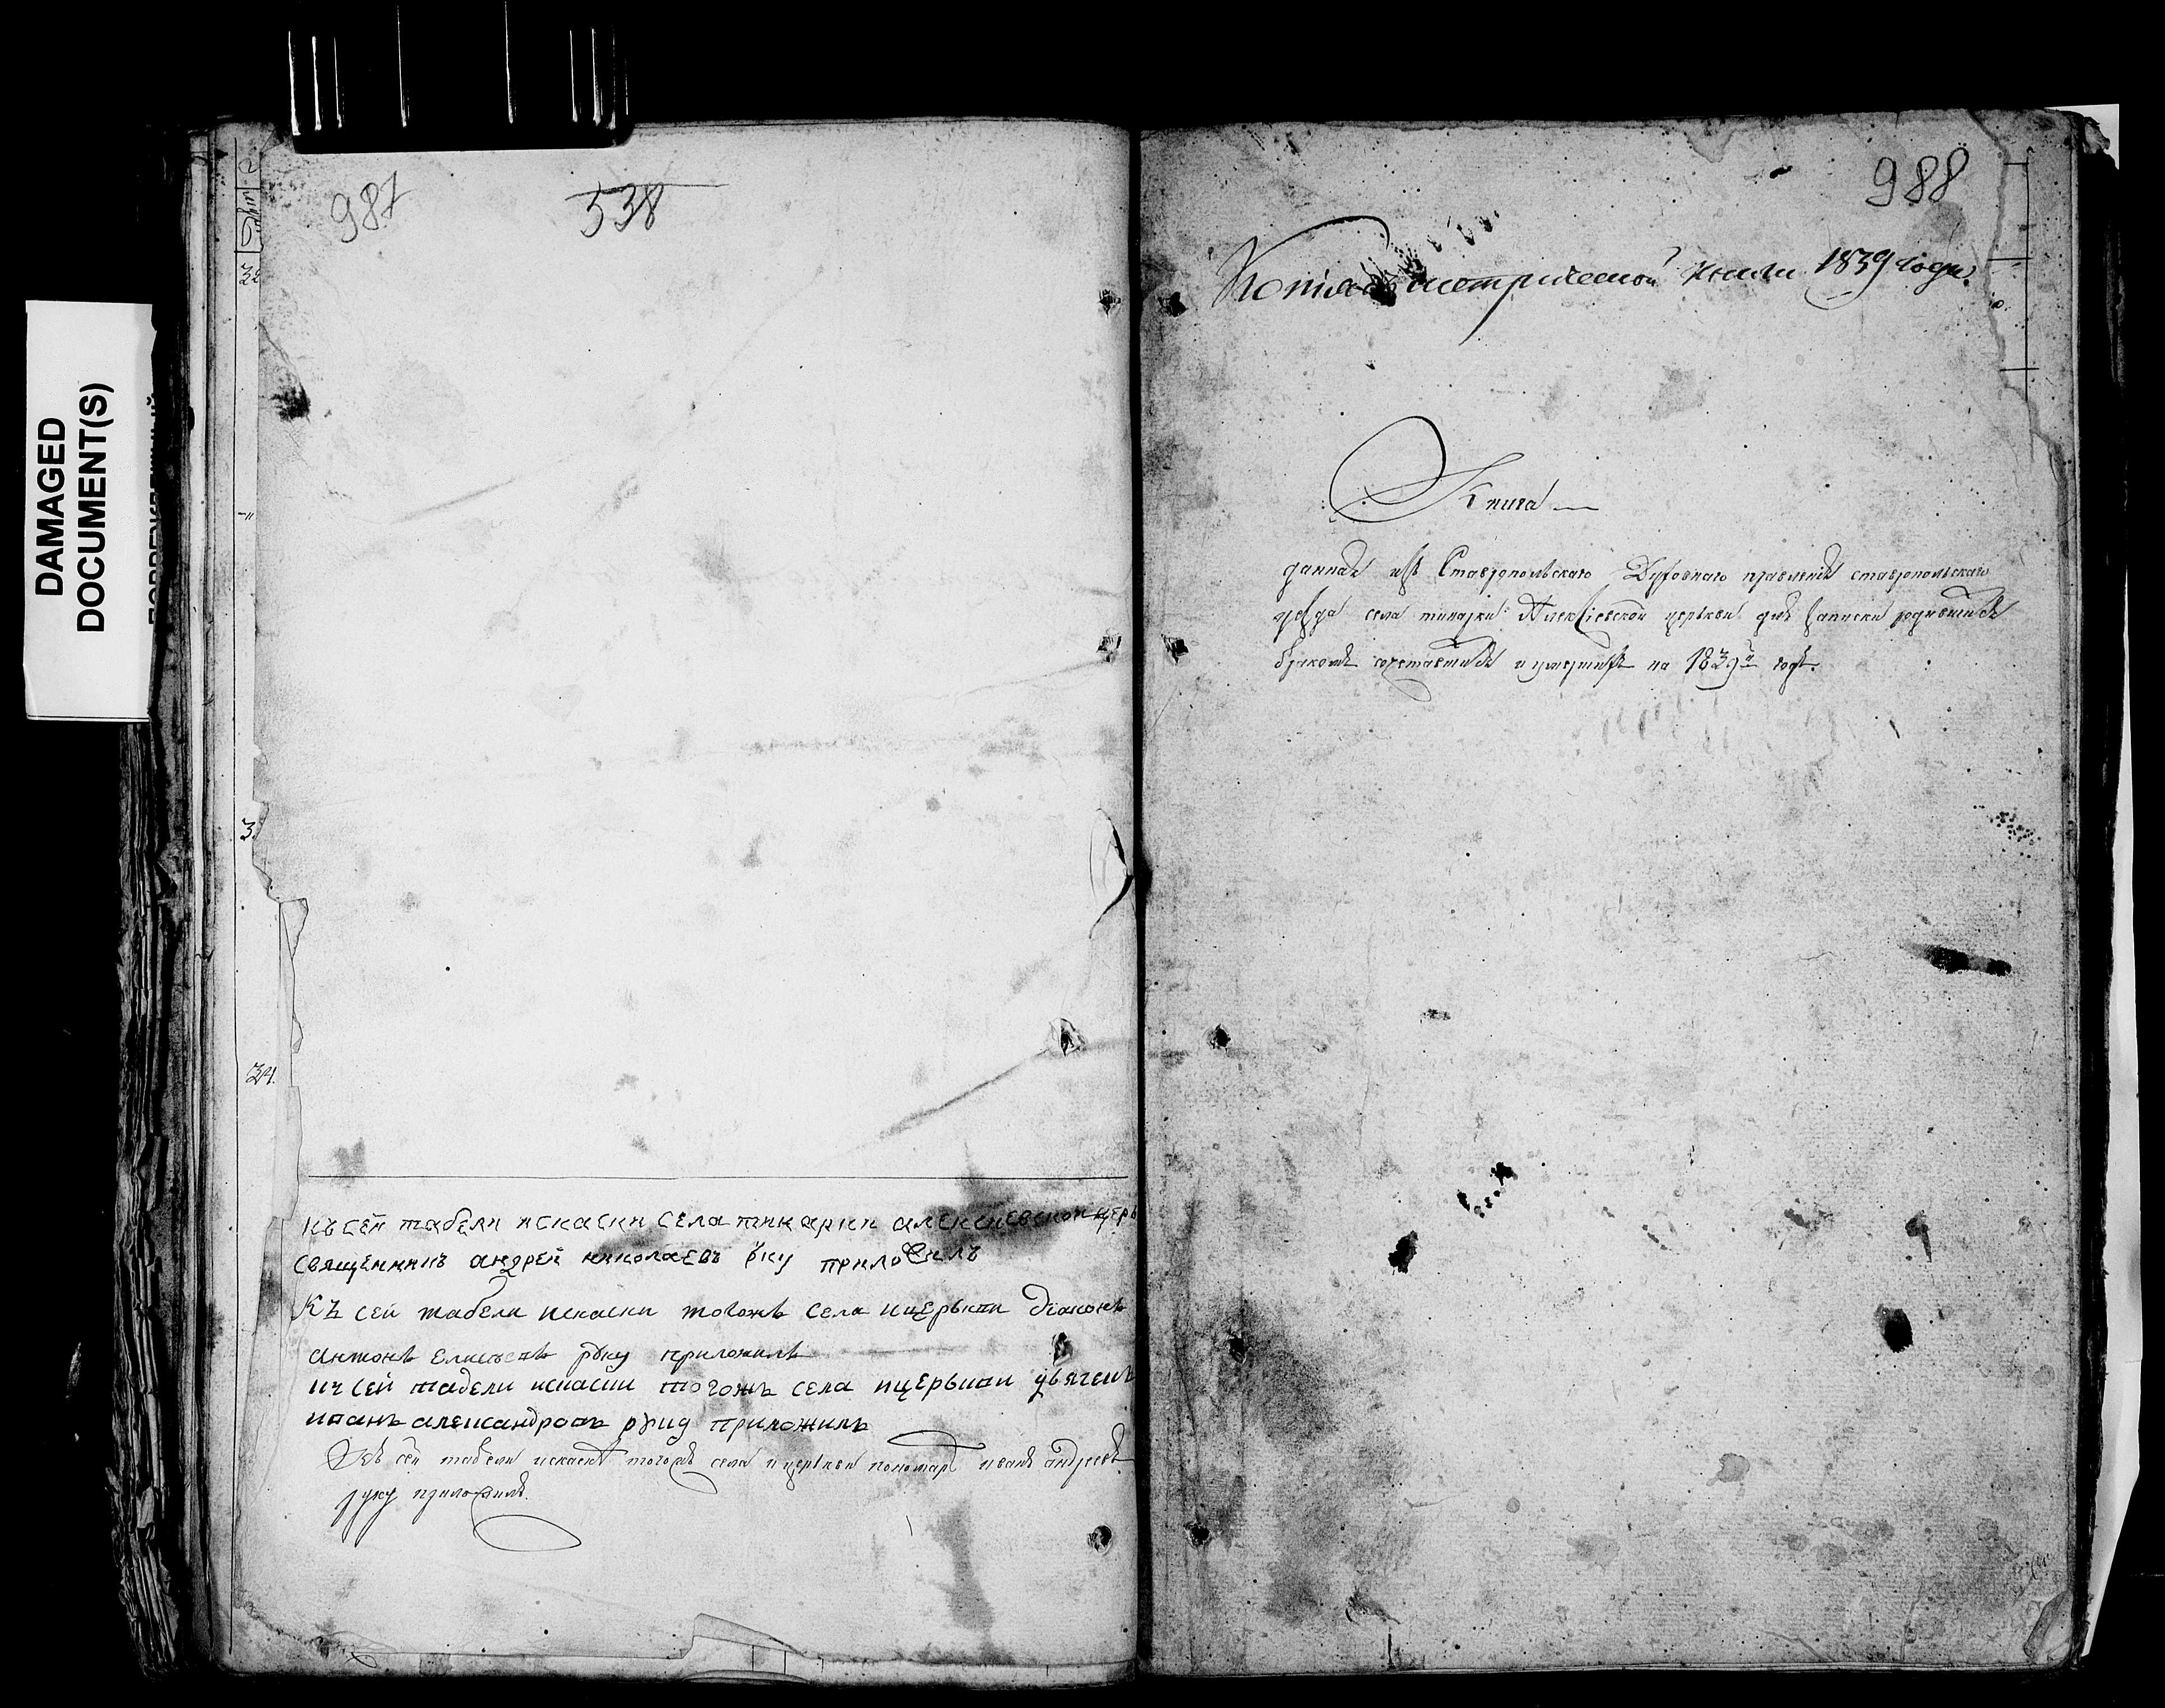 DAMAGED
DOCUMENT(S)
987
538
32
3
34.
къ сей табели искаски села тинарки алексиевской церк
священникъ андрей николаевъ руку приложилъ
Къ сей табели искаски тогожъ села ицеркви діаконъ
антонъ руку приложилъ
къ сей табели искаски тогожъ села ицеркви дьячекъ
иванъ александровъ руку приложилъ
Къ сей табели искаски тогожъ села ицеркви пономарь иванъ андреевъ
руку приложилъ.
988
Копія съ метрической книги 1839 года.
Книга
данная изъ Ставропольскаго Духовнаго правленія ставропольскаго
уезда села тинарки Алексіевской церкви для записки родившихся
бракомъ сочетавшихся и умершихъ на 1839й годъ.